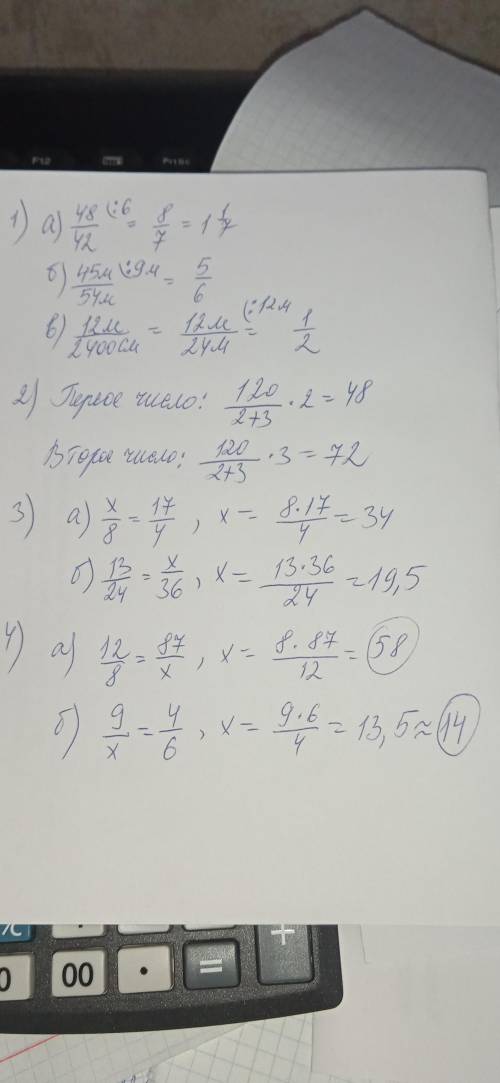 F12 PrtSc
1) а) 48/42 (:6 = 8/7 = 1 1/7
б) 45м/54м (:9м = 5/6
в) 12м/2400см = 12м/24м (:12м = 1/2
2) Первое число: 120/2+3 · 2 = 48
Второе число: 120/2+3 · 3 = 72
3) а) x/8 = 17/4 , x = 8·17/4 = 34
б) 13/24 = x/36 , x = 13·36/24 = 19,5
4) а) 12/8 = 87/x , x = 8·87/12 = 58
б) 9/x = 4/6 , x = 9·6/4 = 13,5 ≈ 14
%
+
0 00 · =